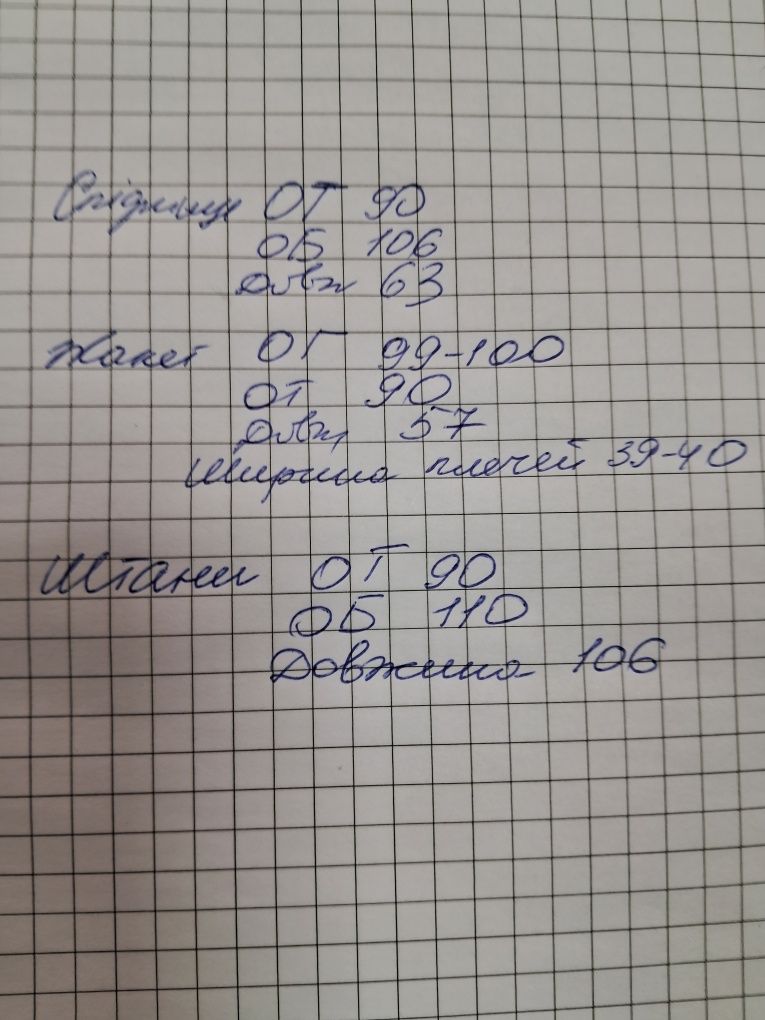 Спідниця ОТ 90
ОБ 106
Довж 63
Жакет ОГ 99-100
ОТ 90
Довж 57
Ширина плечей 39-40
Штани ОТ 90
ОБ 110
Довжина 106